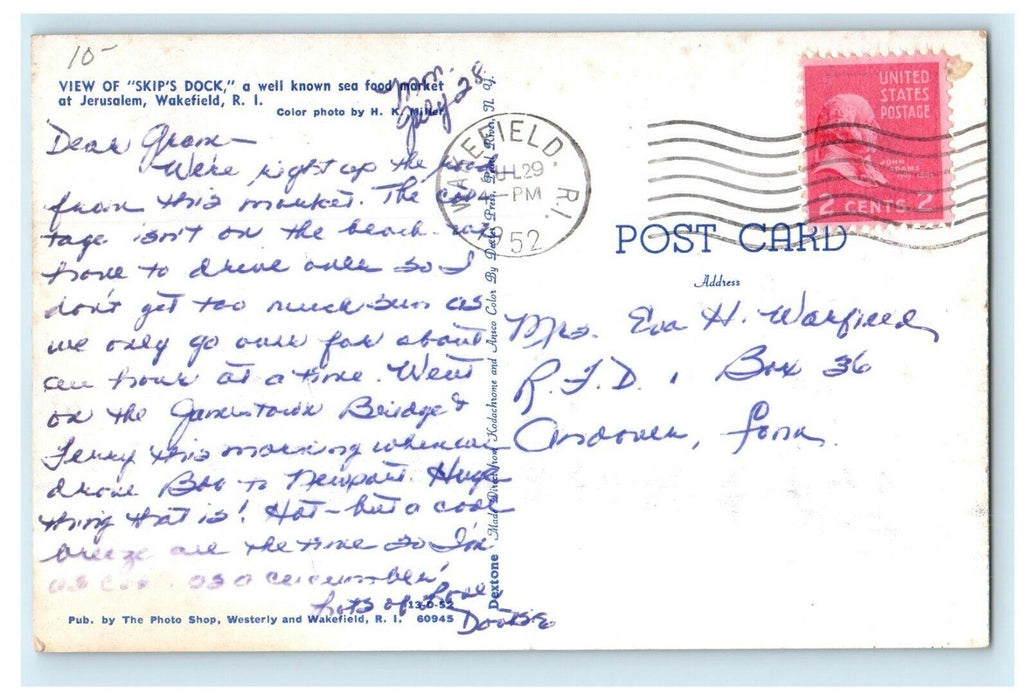 10-
VIEW OF "SKIP'S DOCK," a well known sea food market
at Jerusalem, Wakefield, R. I.
Color photo by H. K. Miller
Mon.
July 28
Dear Gram—
We're right up the road
from this market. The cot-
tage isn't on the beach - we
have to drive over so I
don't get too much sun as
we only go over for about
an hour at a time. Went
on the Jamestown Bridge &
Ferry this morning when we
drove Bob to Newport. Huge
thing that is! Hot - but a cool
breeze all the time so I'm
as cool as a cucumber!
Lots of love,
Dootsie
13-D-52
Pub. by The Photo Shop, Westerly and Wakefield, R. I. 60945
Dextone Made Direct from Kodachrome and Ansco Color By Dexter Press, Pearl River, N. Y.
WAKEFIELD. R.I.
JUL 29
4 - PM
1952
UNITED
STATES
POSTAGE
JOHN
ADAMS
2 CENTS 2
POST CARD
Address
Mrs. Eva H. Warfield
R.F.D. , Box 36
Andover, Conn.